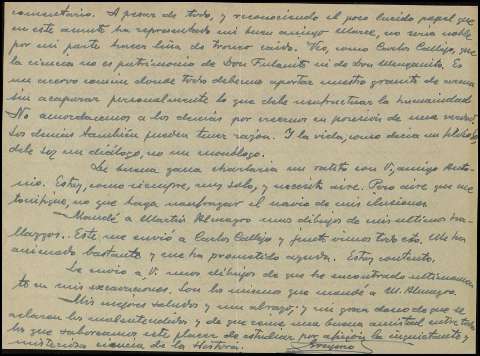 comentario. A pesar de todo, y reconociendo el poco lucido papel que
en este asunto ha representado mi buen amigo Marcel, no sería noble
por mi parte hacer leña de tronco caído. Veo, como Carlos Callejo, que
la ciencia no es patrimonio de Don Fulanito ni de don Menganito. Es
un acervo común donde todos debemos aportar nuestro granito de arena
sin acaparar personalmente lo que debe usufructuar la humanidad
No amordacemos a los demás por creernos en posesión de una verdad.
Los demás también pueden tener razón. Y la vida, como decía un filósofo,
debe ser un diálogo, no un monólogo.
De buena gana charlaría un ratito con V, amigo Anto-
nio. Estoy, como siempre, muy solo, y necesito aire. Pero aire que me
tonifique, no que haga naufragar el navío de mis ilusiones
Mandé a Martín Almagro unos dibujos de mis últimos ha-
llazgos. Este me envió a Carlos Callejo y juntos vimos todo esto. Me ha
animado bastante y me ha prometido ayuda. Estoy contento.
Le envío a V. unos dibujos de que he encontrado últimamen-
te en mis excavaciones. Son lo mismo que mandé a M. Almagro.
Mis mejores saludos y un abrazo, y mi gran deseo de que se
aclaren los malentendidos y de que reine una buena amistad entre todos
los que saboreamos este placer de estudiar por afición la inquietante y
misteriosa ciencia de la Historia.